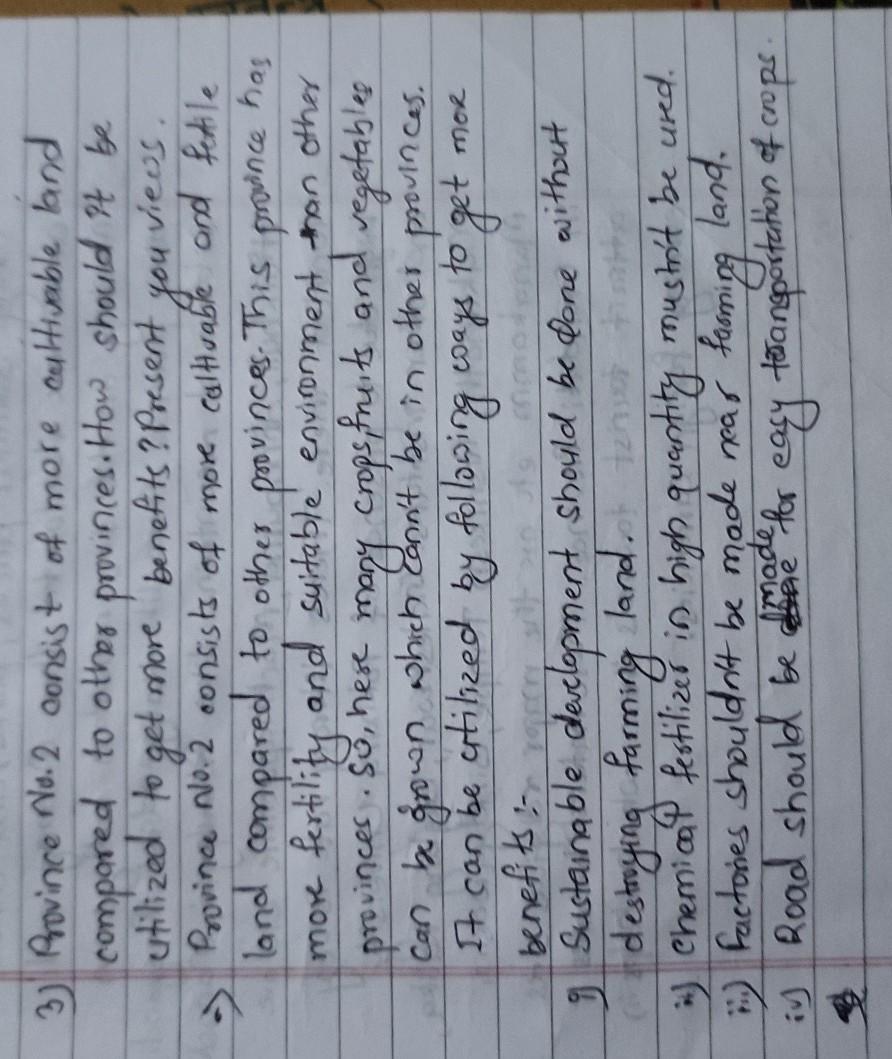 3) Province No.2 consist of more cultivable land
compared to other provinces. How should it be
utilized to get more benefits? Present you views.
=> Province No.2 consists of more cultivable and fertile
land compared to other provinces. This province has
more fertility and suitable environment than other
provinces. So, here many crops, fruits and vegetables
can be grown which cann't be in other provinces.
It can be utilized by following ways to get more
benefits:-
i) Sustainable development should be done without
destroying farming land.
ii) Chemical fertilizer in high quantity mustn't be used.
iii) Factories shouldn't be made near farming land.
iv) Road should be made for easy transportation of crops.